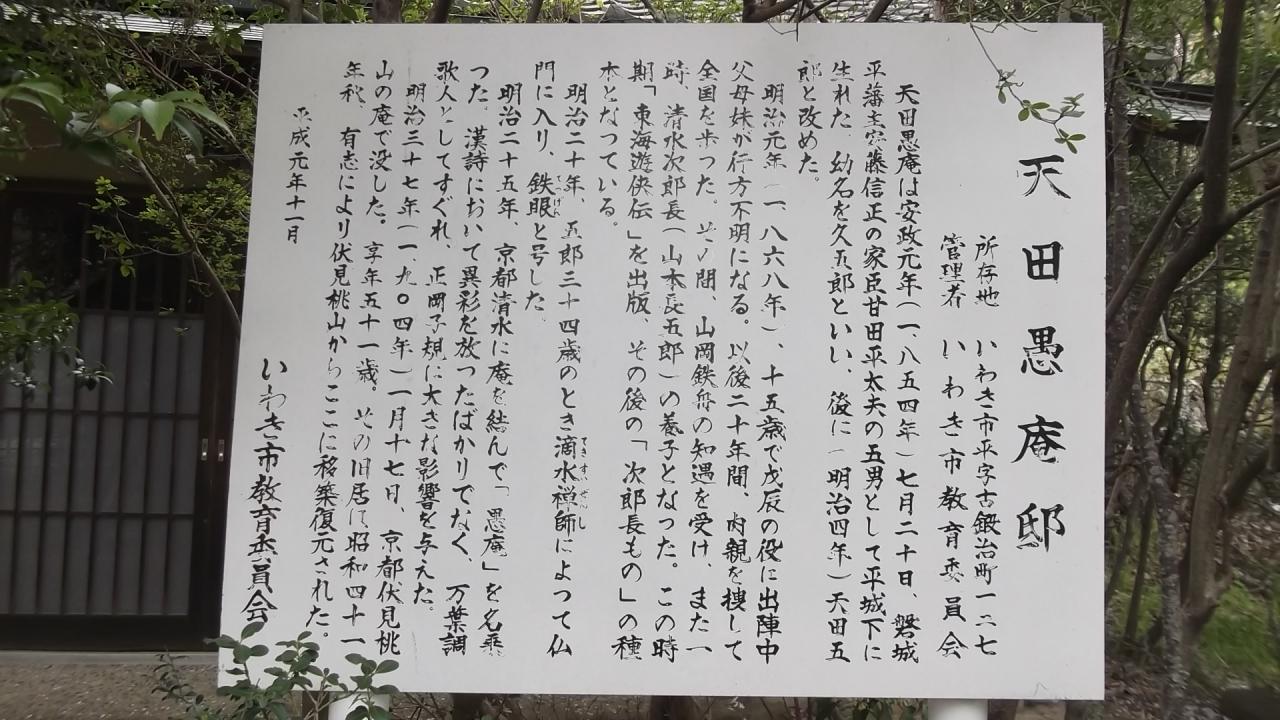 天田愚庵邸
所存地 いわき市平字古鍛治町一二七
管理者 いわき市教育委員会
天田愚庵は安政元年(一八五四年)七月二十日、磐城
平藩主安藤信正の家臣甘田平太夫の五男として平城下に
生れた 幼名を久五郎といい、後に(明治四年)天田五
郎と改めた。
明治元年(一八六八年)、十五歳で戊辰の役に出陣中
父母妹が行方不明になる。以後二十年間、肉親を捜して
全国を歩った。その間、山岡鉄舟の知遇を受け、また一
時、清水次郎長(山本長五郎)の養子となった。この時
期「東海遊侠伝」を出版、その後の「次郎長もの」の種
本となっている。
明治二十年、五郎三十四歳のとき滴水禅師によって仏
門に入り、鉄眼と号した
明治二十五年、京都清水に庵を結んで「愚庵」を名乗
った。漢詩において異彩を放ったばかりでなく、万葉調
歌人としてすぐれ、正岡子規に大きな影響を与えた。
明治三十七年(一九〇四年)一月十七日、京都伏見桃
山の庵で没した。享年五十一歳。その旧居は昭和四十一
年秋、有志により伏見桃山からここに移築復元された。
平成元年十一月
いわき市教育委員会